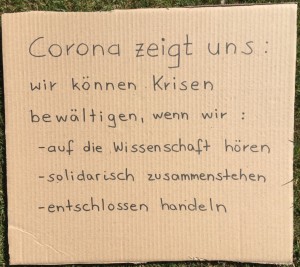 Corona zeigt uns:
wir können Krisen
bewältigen, wenn wir:
-auf die Wissenschaft hören
-solidarisch zusammenstehen
-entschlossen handeln